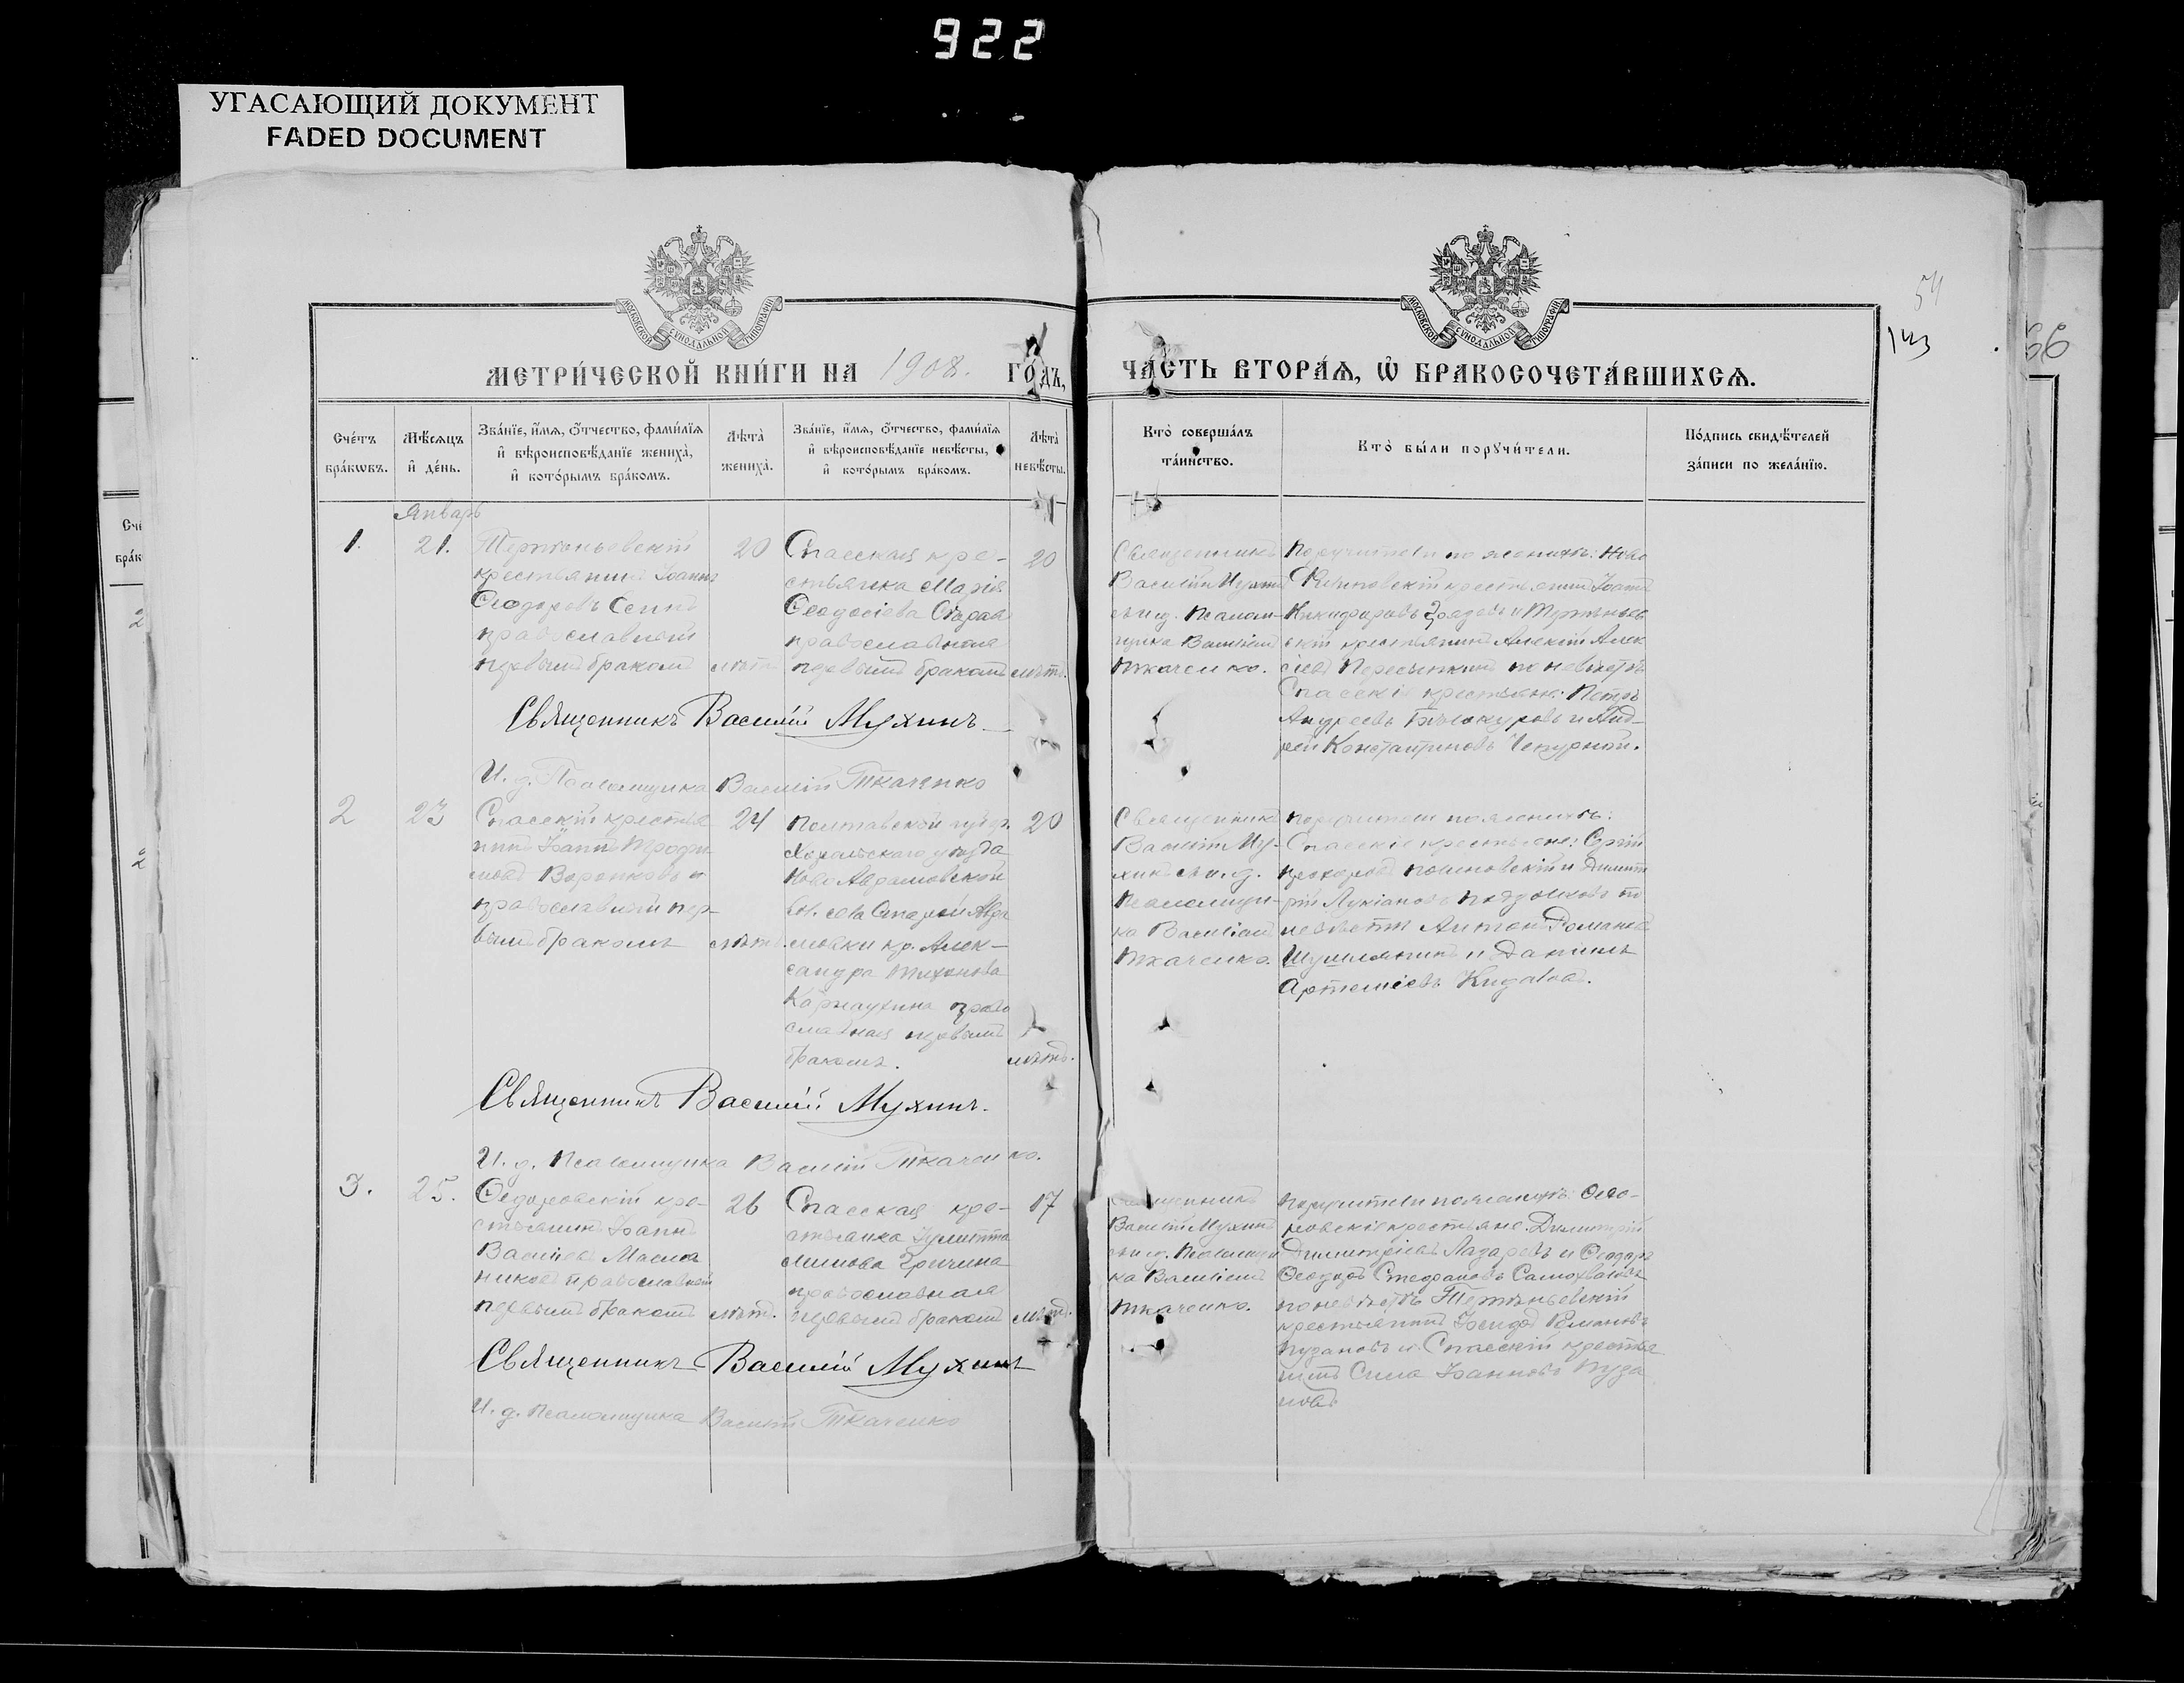 922
УГАСАЮЩИЙ ДОКУМЕНТ
FADED DOCUMENT
54
143
66
МЕТРИ́ЧЕСКОЙ КНИ́ГИ НА 1908. ГО́ДЪ,
ЧА́СТЬ ВТОРА́Ѧ, Ѡ҆ БРАКОСОЧЕТА́ВШИХСѦ.
МОСКОВСКОЙ СѴНОДАЛЬНОЙ ТИПОГРАФІИ
МОСКОВСКОЙ СѴНОДАЛЬНОЙ ТИПОГРАФІИ
Сче́тъ бра́кѡвъ.
Мѣ́сяцъ и҆ де́нь.
Зва́нїе, и҆́мѧ, ѻ҆́тчество, фами́лїѧ
и҆ вѣроисповѣ́данїе жениха̀,
и҆ кото́рымъ бра́комъ.
Лѣта̀ жениха̀.
Зва́нїе, и҆́мѧ, ѻ҆́тчество, фами́лїѧ
и҆ вѣроисповѣ́данїе невѣ́сты,
и҆ кото́рымъ бра́комъ.
Лѣта̀ невѣ́сты.
Кто̀ соверша́лъ
та́инство.
Кто̀ бы́ли порꙋчи́тели.
По́дпись свидѣ́телей
за́писи по жела́нїю.
Январь
1.
21.
крестьянинъ Іоаннъ
Ѳеодоровъ
православный
первымъ бракомъ
20
лѣтъ
Спасская кре-
стьянка Марія
Ѳеодосіева
православная
первымъ бракомъ
20
лѣтъ.
Священникъ
Василій Мухинъ
съ и. д. Псалом-
щика Василіемъ
Ткаченко.
Поручители по женихѣ: Ново
крестьянинъ Іоаннъ
Никифоровъ
крестьянинъ Алексій Алек
сіевъ Пересыпкинъ по невѣстѣ
Спасскіе крестьяне: Петръ
Андреевъ Бѣлокуровъ и Анд-
рей Константиновъ Чекурной.
Священникъ Василій Мухинъ
И. д. Псаломщика Василій Ткаченко
2
23
Спасскій крестья
нинъ Іоаннъ Трофи
мовъ
православный пер-
вымъ бракомъ
24
лѣтъ.
Полтавской губер.
Хорольскаго уѣзда
Ново Аврамовской
вол. села Старой Авра
мовки кр. Алек-
сандра Тихонова
Карнаухина право
славная первымъ
бракомъ.
20
лѣтъ.
Священникъ
Василій Му-
хинъ съ и. д.
Псаломщи-
ка Василіемъ
Ткаченко.
Поручители по женихѣ:
Спасскіе крестьяне: Сергій
Прохоровъ и Димит
рій Лукіановъ по
невѣстѣ Антонъ Романовъ
и Даніилъ
Артеміевъ Кидаловъ.
Священникъ Василій Мухинъ.
И. д. Псаломщика Василій Ткаченко.
3.
25.
Ѳедоровскій кре-
стьянинъ Іоаннъ
Василіевъ Маслен
никовъ православный
первымъ бракомъ
26
лѣтъ.
Спасская кре-
стьянка Іулитта
православная
первымъ бракомъ
17
лѣтъ.
Священникъ
Василій Мухинъ
съ и. д. Псаломщи
ка Василіемъ
Ткаченко.
Поручители по женихѣ: Ѳедо-
ровскіе крестьяне: Димитрій
Димитріевъ Лазаревъ и Ѳеодоръ
Стефановъ Самохваловъ
по невѣстѣ
крестьянинъ Романовъ
Пузановъ и Спасскій крестья
нинъ Сила Іоанновъ Пуза
новъ
Священникъ Василій Мухинъ
И. д. Псаломщика Василій Ткаченко